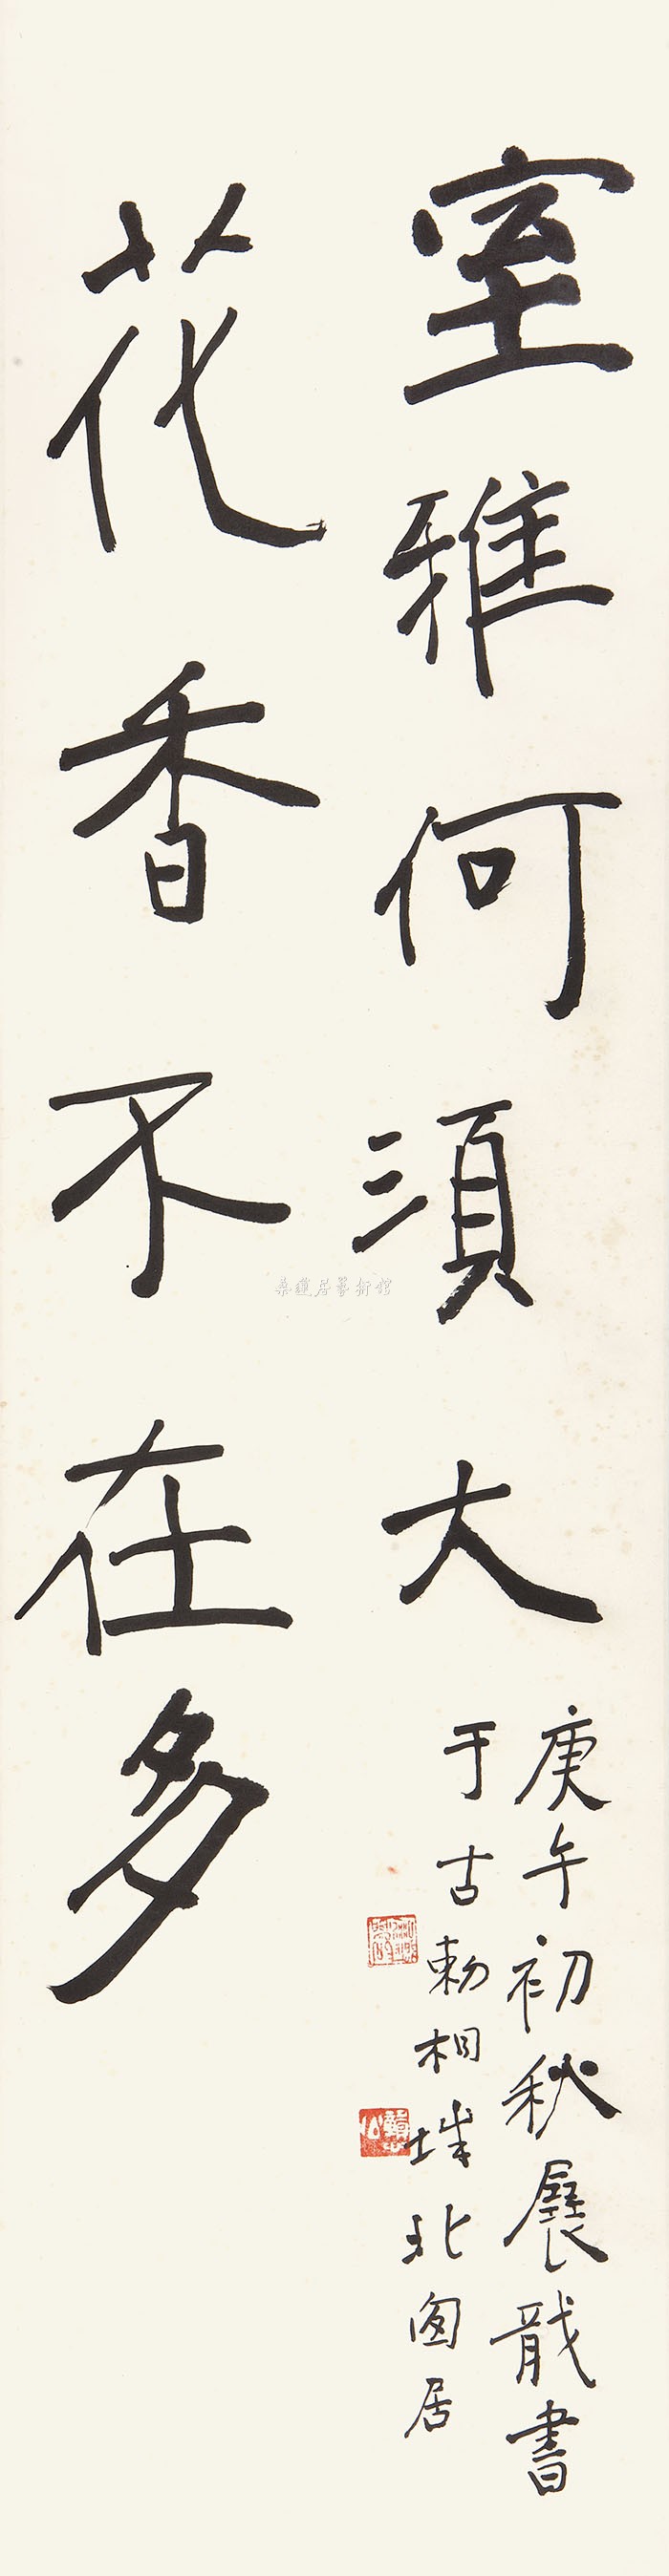 室雅何須大
花香不在多
庚午初秋展戠書
于古勅相城北囱居
桑蓮居藝術館